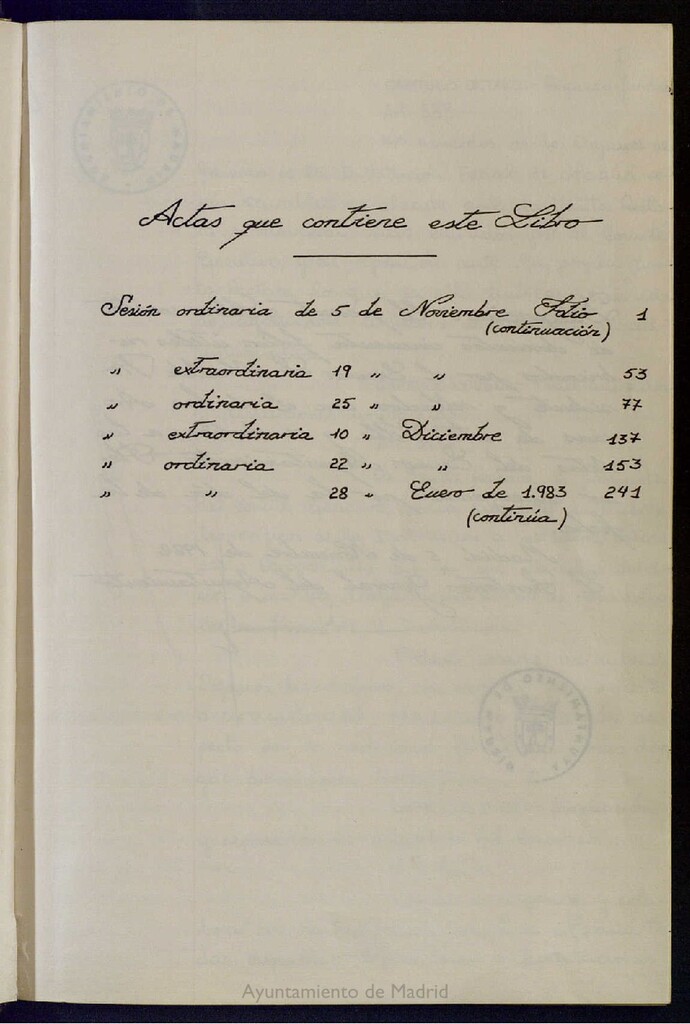 Actas que contiene este Libro
Sesión ordinaria de 5 de Noviembre Folio 1
(continuación)
" extraordinaria 19 " " 53
" ordinaria 25 " " 77
" extraordinaria 10 " Diciembre 137
" ordinaria 22 " " 153
" " 28 " Enero de 1.983 241
(continúa)
Ayuntamiento de Madrid